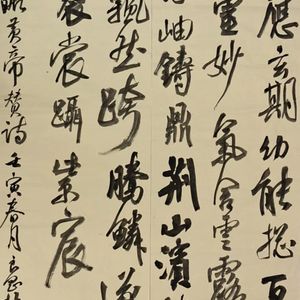 應玄期幼能摠百
靈妙氣含雲露
岫鑄鼎荊山濱
飄然跨騰鱗
裳躡紫宸
黃帝贊詩壬寅春月